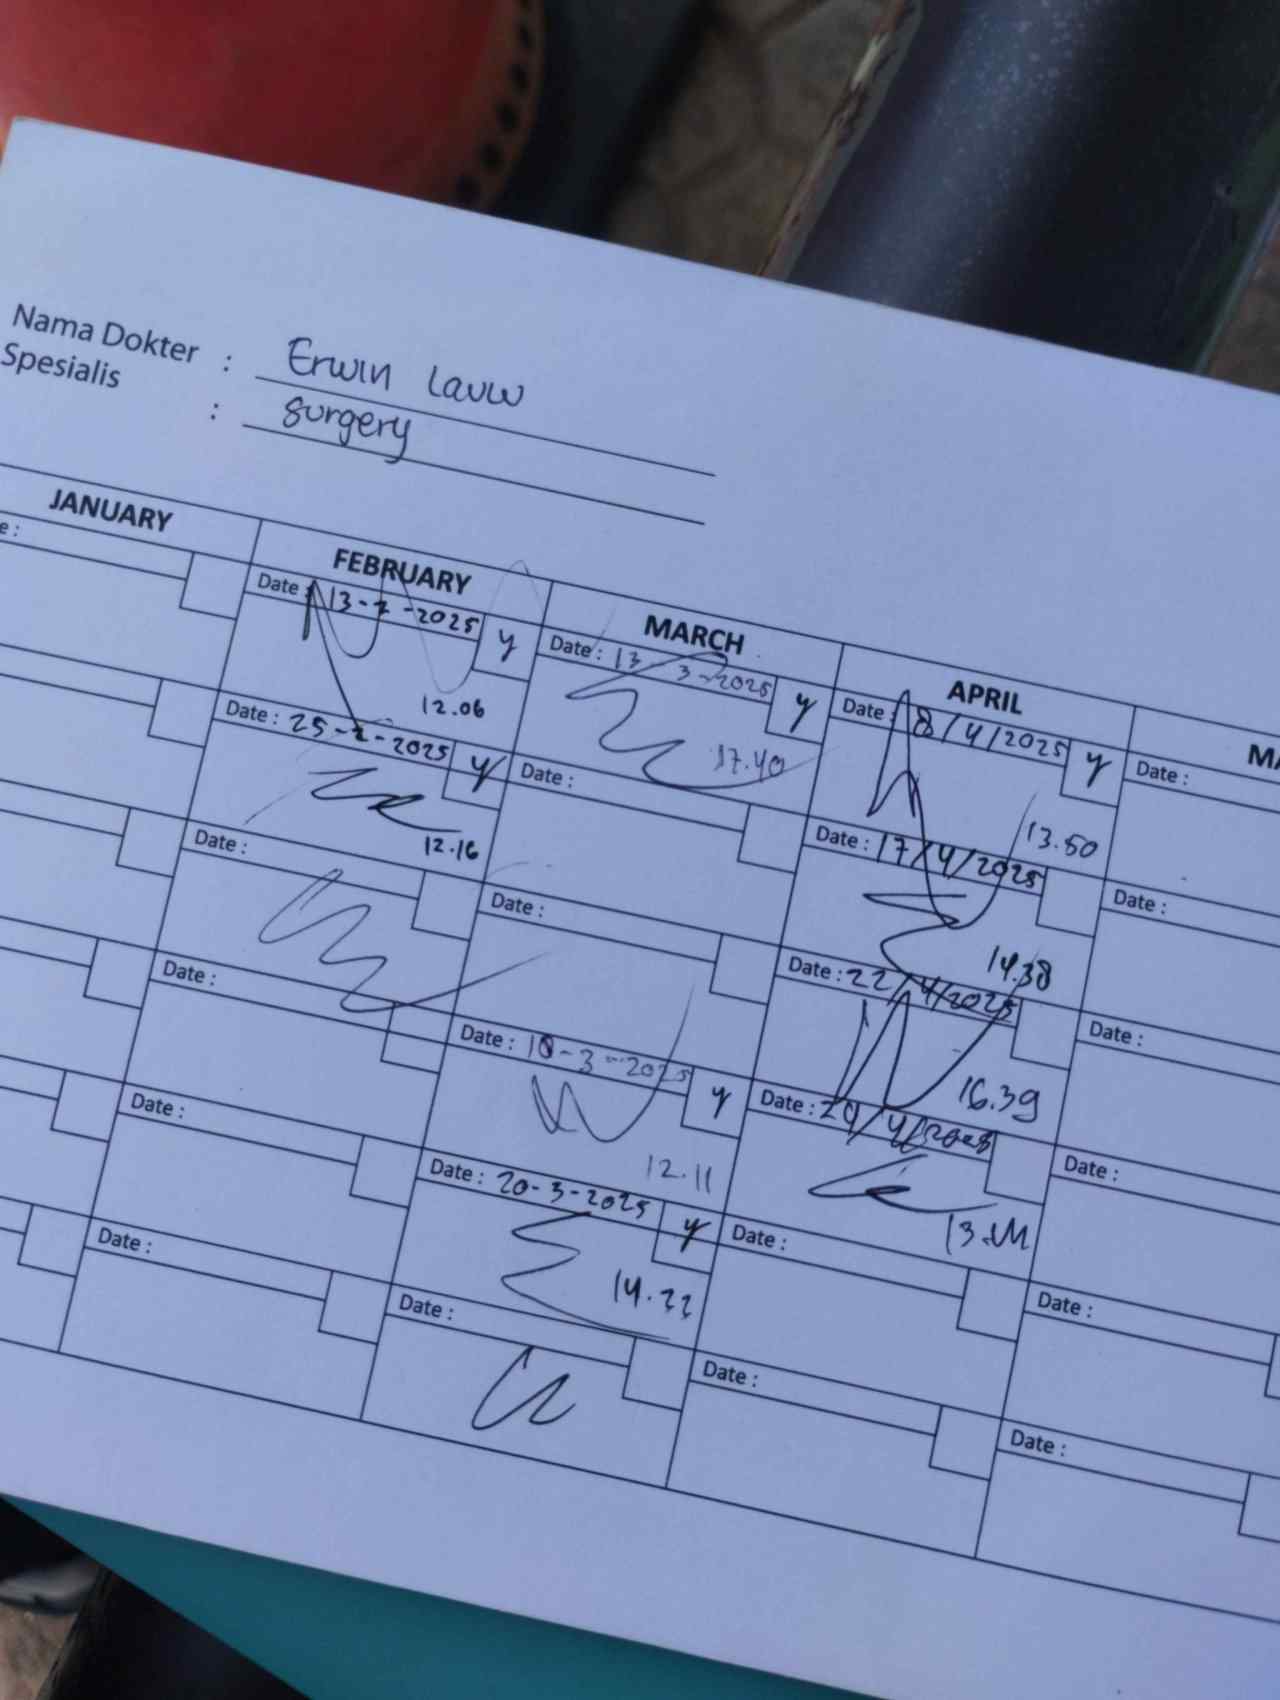 Nama Dokter : Erwin Lauw
Spesialis : surgery
JANUARY
FEBRUARY
MARCH
APRIL
Date : 13-2-2025 y
12.06
Date : 25-2-2025 y
12.16
Date :
Date :
Date :
Date :
Date : 13-3-2025 y
17.40
Date :
Date :
Date : 18-3-2025 y
12.11
Date : 20-3-2025 y
14.22
Date :
Date : 8/4/2025 y
13.50
Date : 17/4/2025
14.38
Date : 22/4/2025
16.39
Date : 29/4/2025
Date :
Date :
Date :
Date :
Date :
Date :
Date :
Date :